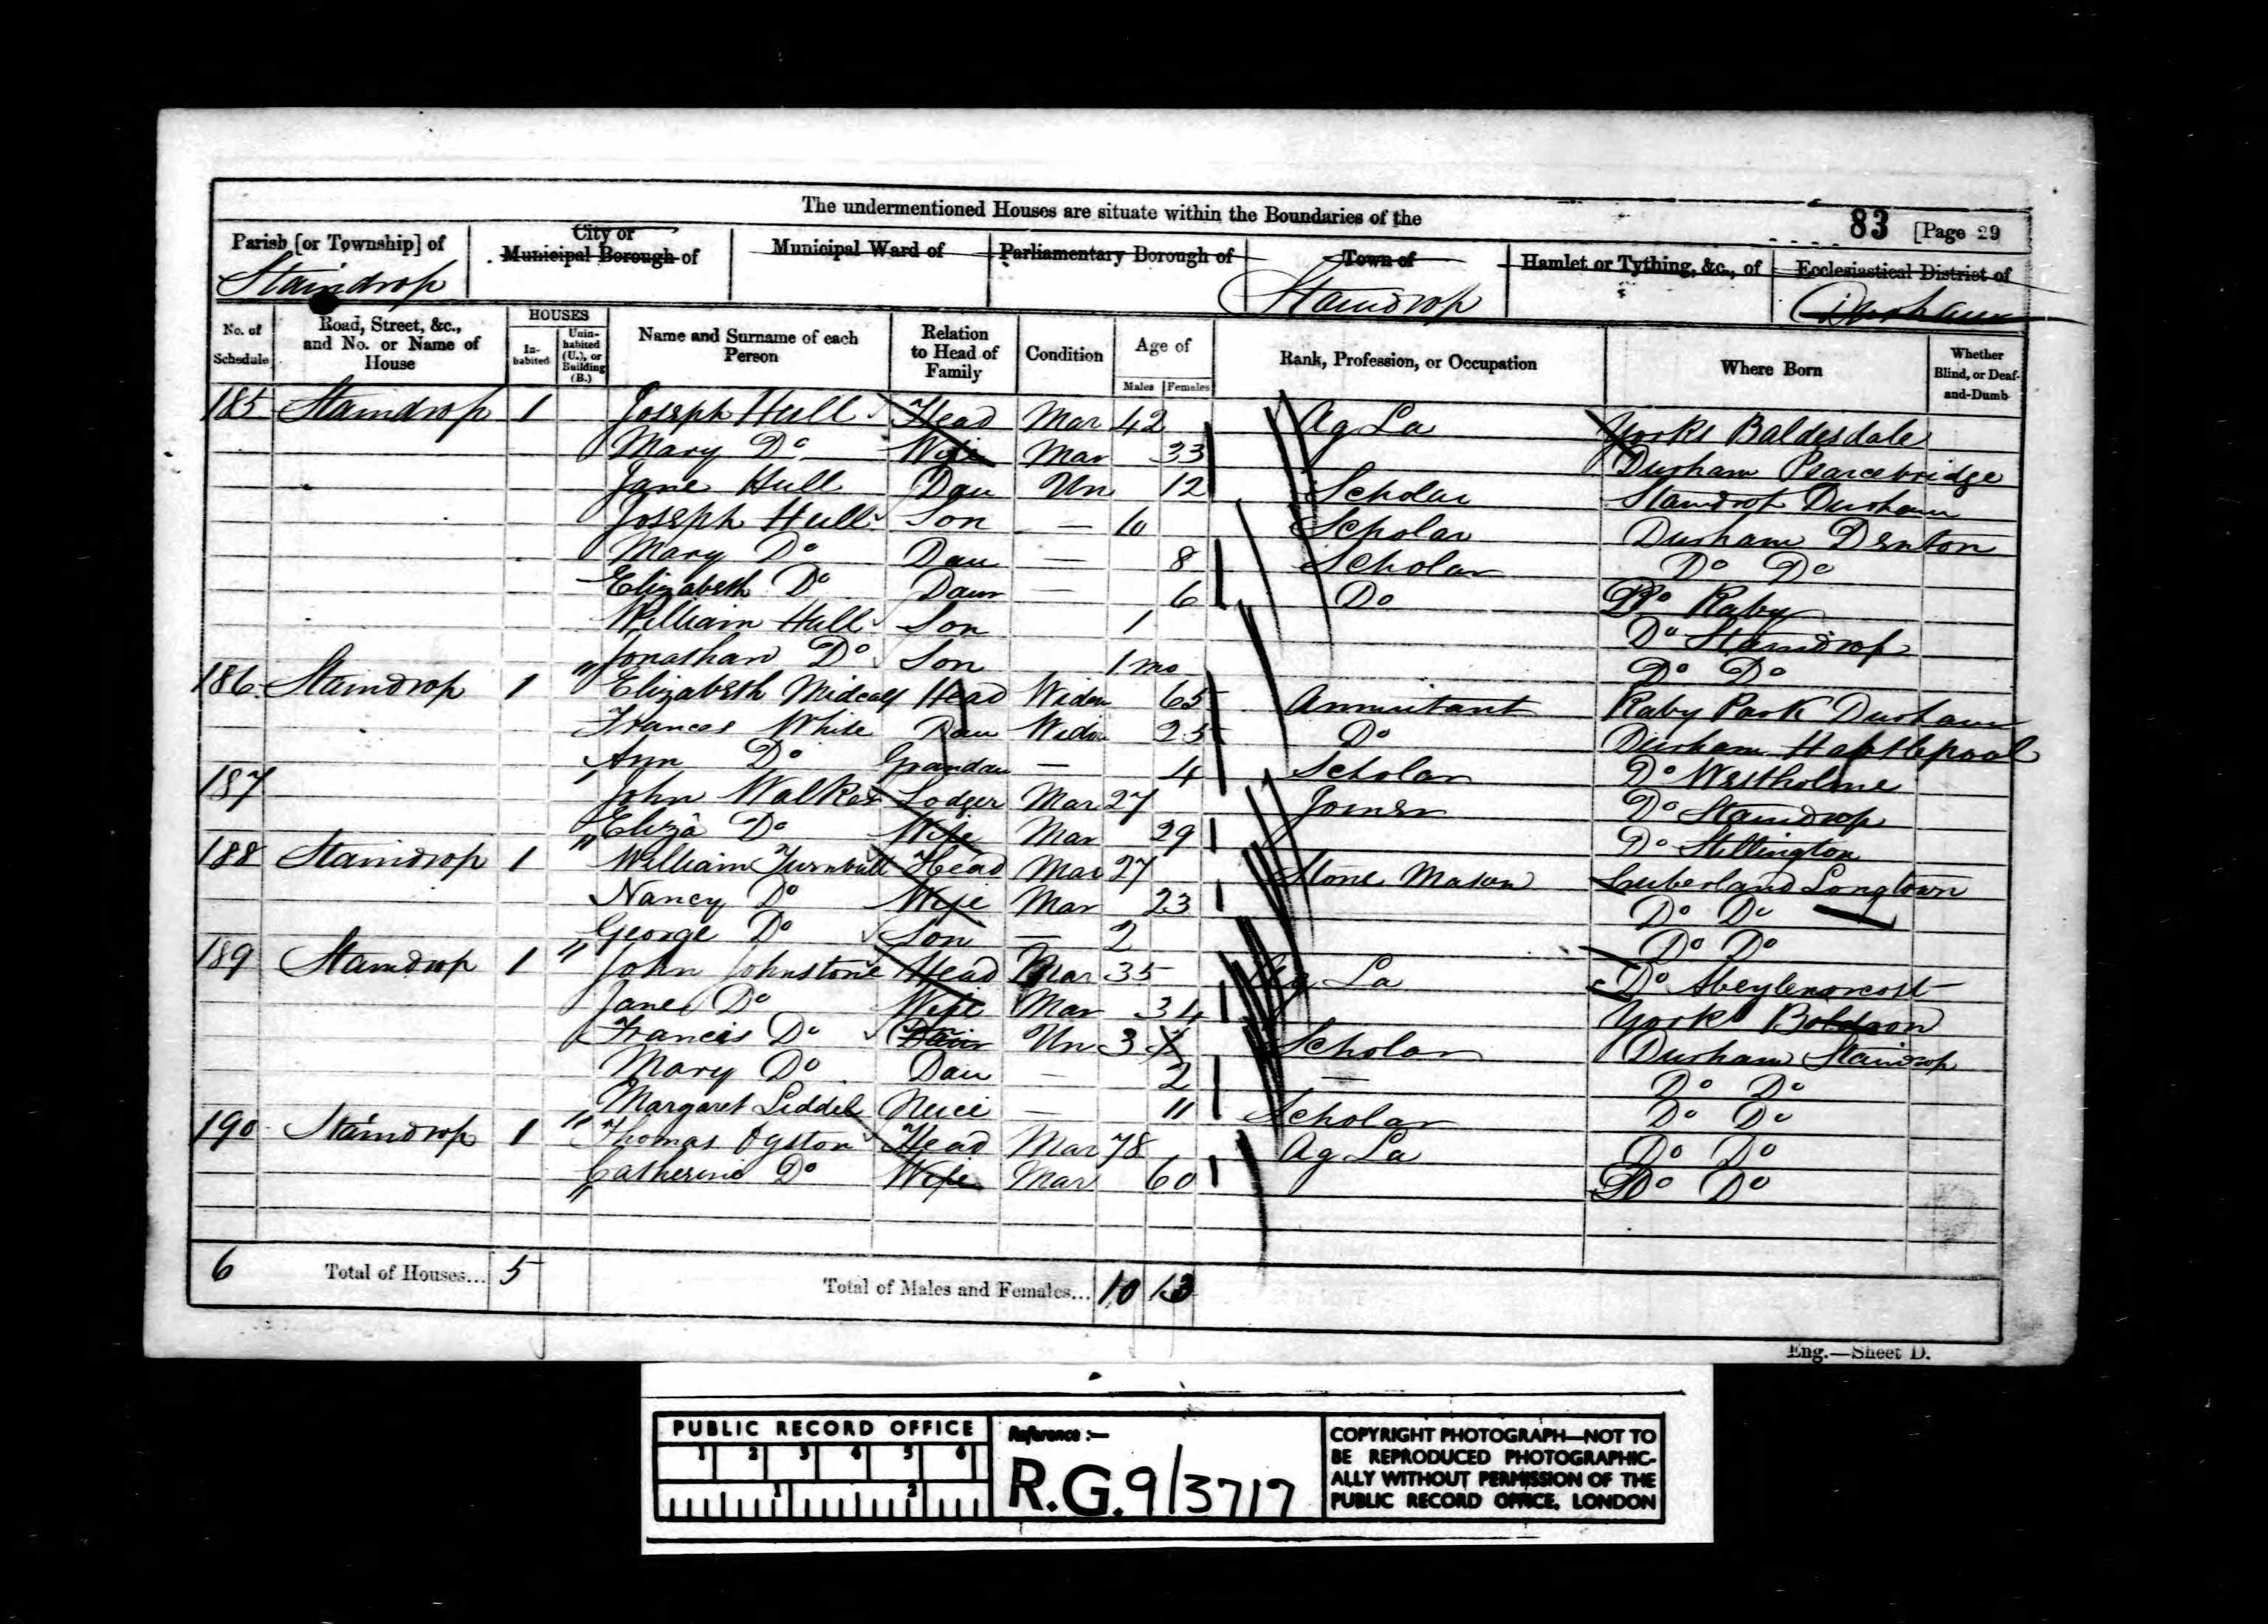 The undermentioned Houses are situate within the Boundaries of the
83 [Page 29
Parish [or Township] of City or Municipal Borough of Municipal Ward of Parliamentary Borough of Town of Hamlet or Tything, &c., of Ecclesiastical District of
Staindrop Staindrop Durham
No. of Schedule Road, Street, &c., and No. or Name of House HOUSES In-habited Unin-habited (U.), or Building (B.) Name and Surname of each Person Relation to Head of Family Condition Age of Males Females Rank, Profession, or Occupation Where Born Whether Blind, or Deaf-and-Dumb
185 Staindrop 1 Joseph Hull Head Mar 42 Ag La Yorks Baldesdale
Mary Do Wife Mar 33 Durham Pearcebridge
Jane Hull Dau Un 12 Scholar Staindrop Durham
Joseph Hull Son — 10 Scholar Durham Denton
Mary Do Dau — 8 Scholar Do Do
Elizabeth Do Daur — 6 Do Do Raby
William Hull Son 1 Do Staindrop
Jonathan Do Son 1 mo Do Do
186 Staindrop 1 Elizabeth Midcalf Head Widow 65 Annuitant Raby Park Durham
Frances White Dau Widow 25 Do Durham Hartlepool
Ann Do Grandau — 4 Scholar Do Westholme
187 John Walker Lodger Mar 27 Joiner Do Staindrop
Eliza Do Wife Mar 29 Do Stillington
188 Staindrop 1 William Turnbull Head Mar 27 Stone Mason Cuberland Longtown
Nancy Do Wife Mar 23 Do Do
George Do Son — 2 Do Do
189 Staindrop 1 John Johnstone Head Mar 35 Ag La Do
Jane Do Wife Mar 34 York
Francis Do Un 3 Scholar Durham Staindrop
Mary Do Dau — 2 — Do Do
Margaret Liddel Neice — 11 Scholar Do Do
190 Staindrop 1 Thomas Ogston Head Mar 78 Ag La Do Do
Catherine Do Wife Mar 60 Do Do
6 Total of Houses... 5 Total of Males and Females... 10 13
Eng.—Sheet D.
PUBLIC RECORD OFFICE
1 2 3 4 5 6
1 2
Reference :—
R.G. 9/3717
COPYRIGHT PHOTOGRAPH—NOT TO
BE REPRODUCED PHOTOGRAPHIC-
ALLY WITHOUT PERMISSION OF THE
PUBLIC RECORD OFFICE, LONDON